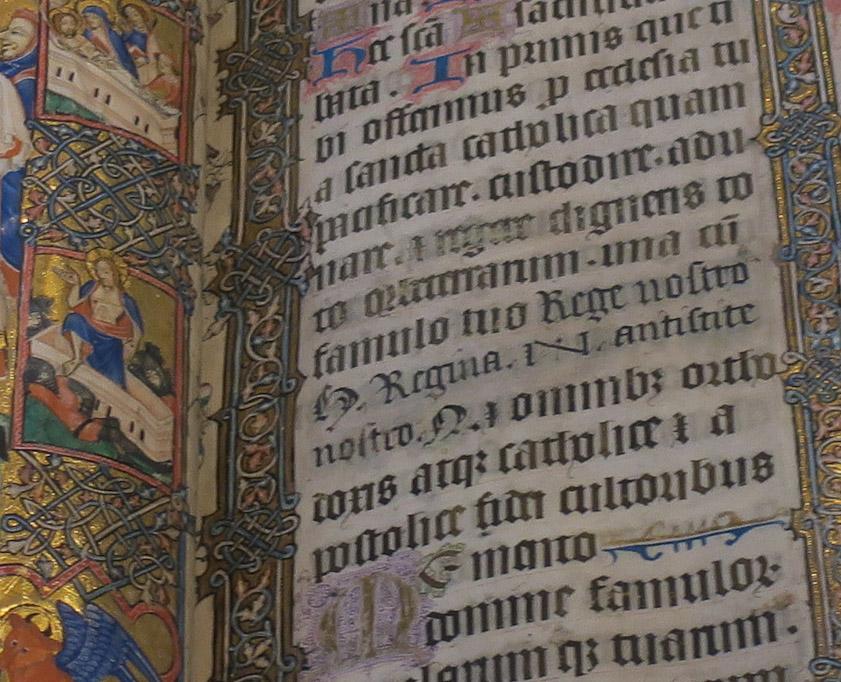 Hec scā
In primis que ti
bi offerimus p ecclesia tu
a sancta catholica quam
pacificare. custodire. adu
nare. ⁊ regere digneris to
to orbe terrarum. una cū
famulo tuo Rege nostro
Regina. N. antistite
nostro. N. ⁊ omnibꝫ ortho
doxis atqꝫ catholice ⁊ a
postolice fidei cultoribus
Memento
domine famulor
famularum qꝫ tuarum.